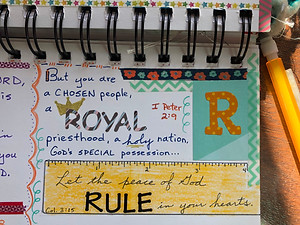 But you are
a CHOSEN people,
a ROYAL
I Peter
2:9
R
priesthood, a holy nation,
God's SPECIAL possession...
Let the peace of God
RULE in your hearts.
Col. 3:15
ORD,
is
in
you
D.